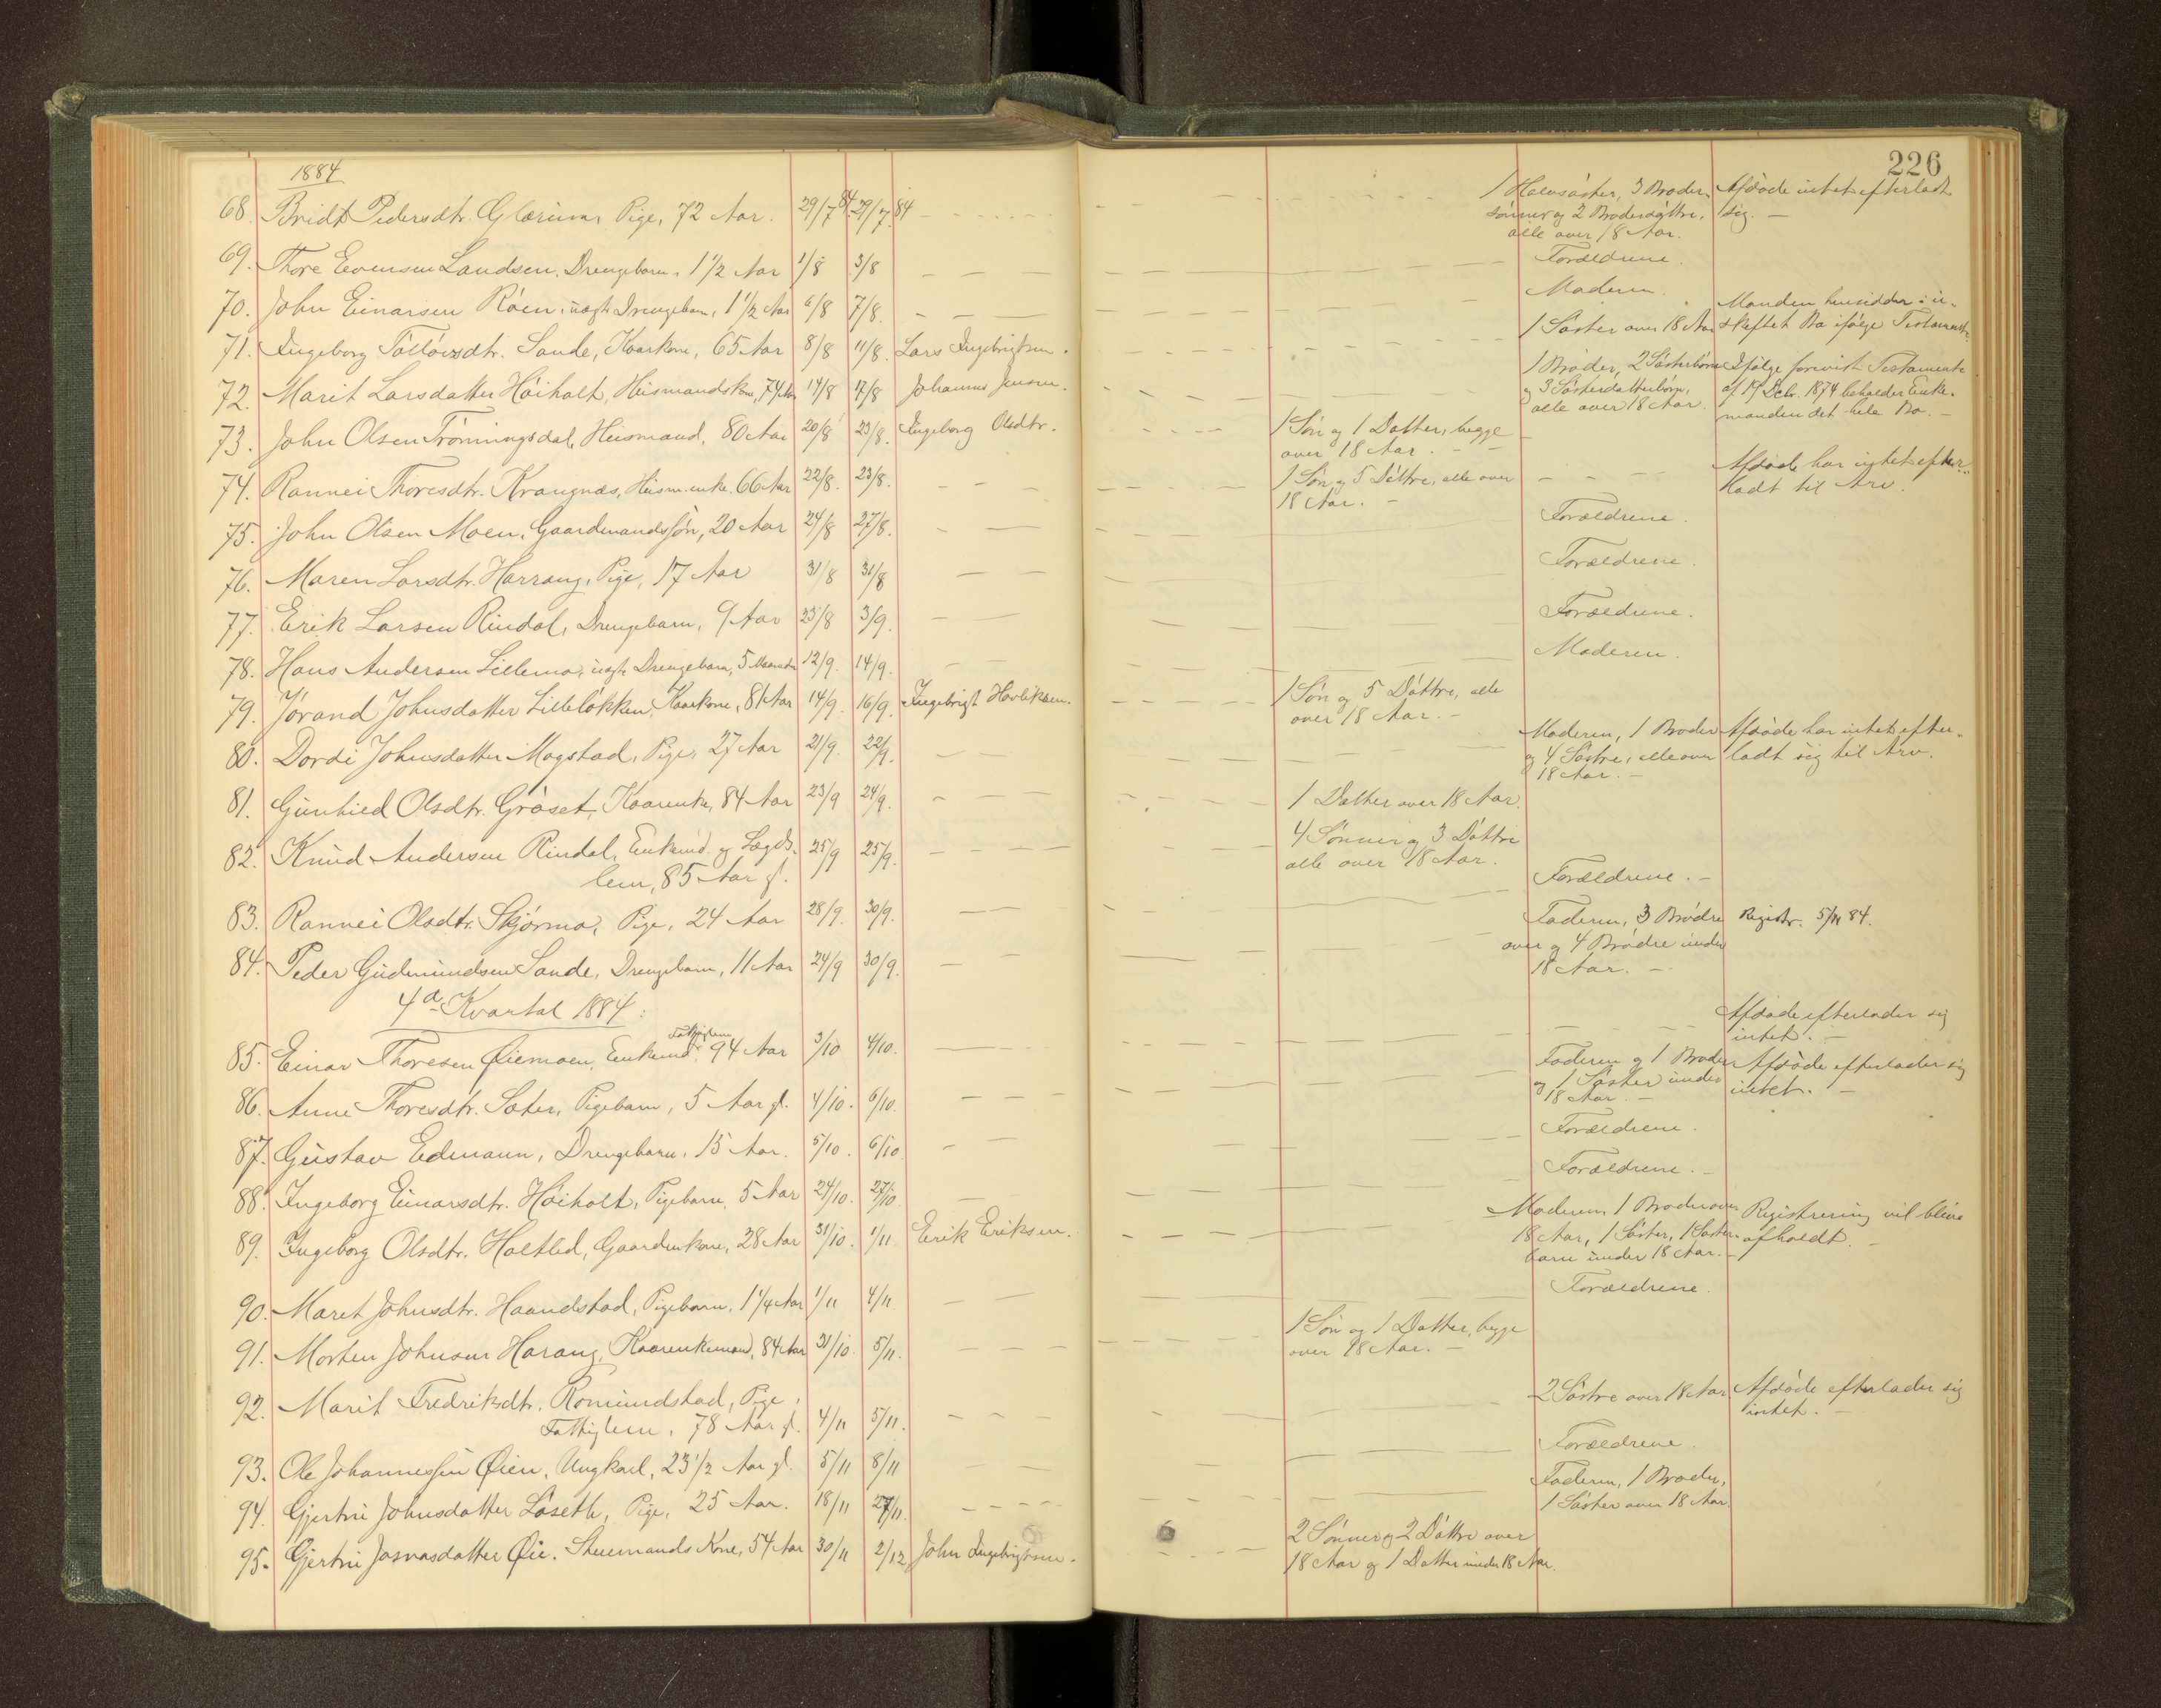 226
1884
68. Bridt Pedersdtr. Glærum, Pige, 72 Aar. 29/7 84 29/7 84
1 Halvsøster, 3 Broder- Afdøde intet efterladt
sønner og 2 Broderdøttre, sig. —
alle over 18 Aar.
69. Thore Evensen Landsen, Drengebarn, 1 1/2 Aar 1/8 3/8 — — Forældrene.
70. John Einarsen Röen, uægte Drengebarn, 1 1/2 Aar 6/8 7/8. — — Moderen.
71. Ingeborg Tollövsdtr. Sande, Kaarkone, 65 Aar 8/8 11/8. Lars Ingebrigtsen. 1 Søster over 18 Aar
Manden hensidder i u-
skiftet Bo ifølge Testament.
72. Marit Larsdatter Høiholt, Husmandskone, 74 Aar 14/8 17/8 Johannes Jensen.
1 Broder, 2 Søsterbørn Ifølge forevist Testamente
og 3 Søsterdatterbørn, af 19 Debr. 1874 beholder Enke-
alle over 18 Aar. manden det hele Bo. —
73. John Olsen Trönningsdal, Husmand, 80 Aar 20/8 23/8. Ingeborg Olsdtr. 1 Søn og 1 Datter, begge
over 18 Aar. —
74. Rannei Thoresdtr. Krangnæs, Husm.enke, 66 Aar 22/8. 23/8. — — 1 Søn og 5 Døttre, alle over
18 Aar. —
Afdøde har intet efter-
ladt til Arv.
75. John Olsen Moen, Gaardmandssøn, 20 Aar 24/8 27/8. — — Forældrene.
76. Maren Larsdtr. Harrang, Pige, 17 Aar 31/8 31/8 — — Forældrene.
77. Erik Larsen Rindal, Drengebarn, 9 Aar 25/8 3/9. — — Forældrene.
78. Hans Andersen Lillemo, uægte Drengebarn, 5 Maaneder 12/9. 14/9. — — Moderen.
79. Jörand Johnsdatter Lilleløkken, Kaarkone, 81 Aar 14/9. 16/9. Ingebrigt Havliksen. 1 Søn og 5 Døttre, alle
over 18 Aar. —
80. Dordi Johnsdatter Magstad, Pige, 27 Aar 21/9. 22/9. — —
Moderen, 1 Broder Afdøde har intet efter-
og 4 Søstre, alle over ladt sig til Arv.
18 Aar. —
81. Gunhild Olsdtr. Gröset, Kaarenke, 84 Aar 23/9 24/9. — — 1 Datter over 18 Aar.
82. Knud Andersen Rindal, Enkemd. og Lægds- 25/9 25/9. — — 4 Sønner og 3 Døttre
lem, 85 Aar gl. alle over 18 Aar.
83. Rannei Olsdtr. Skjörmo, Pige, 24 Aar 28/9. 30/9. — — Forældrene. —
84. Peder Gudmundsen Sande, Drengebarn, 11 Aar 24/9 30/9. — —
Faderen, 3 Brødre Registr. 5/11 84.
over og 4 Brødre under
18 Aar. —
4de Kvartal 1884:
85. Einar Thoresen Øiemoen, Enkemd. Fattiglem 94 Aar 3/10 4/10. — —
Afdøde efterlader sig
intet. —
86. Anne Thoresdtr. Sæter, Pigebarn, 5 Aar gl. 4/10. 6/10. — — —
Faderen og 1 Broder Afdøde efterlader sig
og 1 Søster under intet. —
18 Aar. —
87. Gustav Edmann, Drengebarn, 15 Aar. 5/10. 6/10. — — Forældrene.
88. Ingeborg Einarsdtr. Høiholt, Pigebarn, 5 Aar 24/10. 27/10 — Forældrene. —
89. Ingeborg Olsdtr. Holtlid, Gaardmkone, 28 Aar 31/10. 1/11 Erik Eriksen.
Moderen, 1 Broder over Registrering vil blive
18 Aar, 1 Søster, 1 Søster- afholdt. —
barn under 18 Aar. —
90. Maret Johnsdtr. Haandstad, Pigebarn, 1 1/4 Aar 1/11 4/11 — — Forældrene.
91. Morten Johnsen Harang, Kaarenkemand, 84 Aar 31/10. 5/11. — — 1 Søn og 1 Datter, begge
over 18 Aar. —
92. Marit Fredriksdtr. Romundstad, Pige,
Fattiglem, 78 Aar gl. 4/11 5/11. — — 2 Søstre over 18 Aar Afdøde efterlader sig
intet. —
93. Ole Johannessen Øien, Ungkarl, 23 1/2 Aar gl. 5/11 8/11 — — Forældrene.
94. Gjertru Johnsdatter Løseth, Pige, 25 Aar. 18/11 27/11. — — Faderen, 1 Broder,
1 Søster over 18 Aar.
95. Gjertru Jonasdatter Øie, Stuemands Kone, 54 Aar 30/11 2/12 John Ingebrigtsen. 2 Sønner og 2 Døttre over
18 Aar og 1 Datter under 18 Aar.